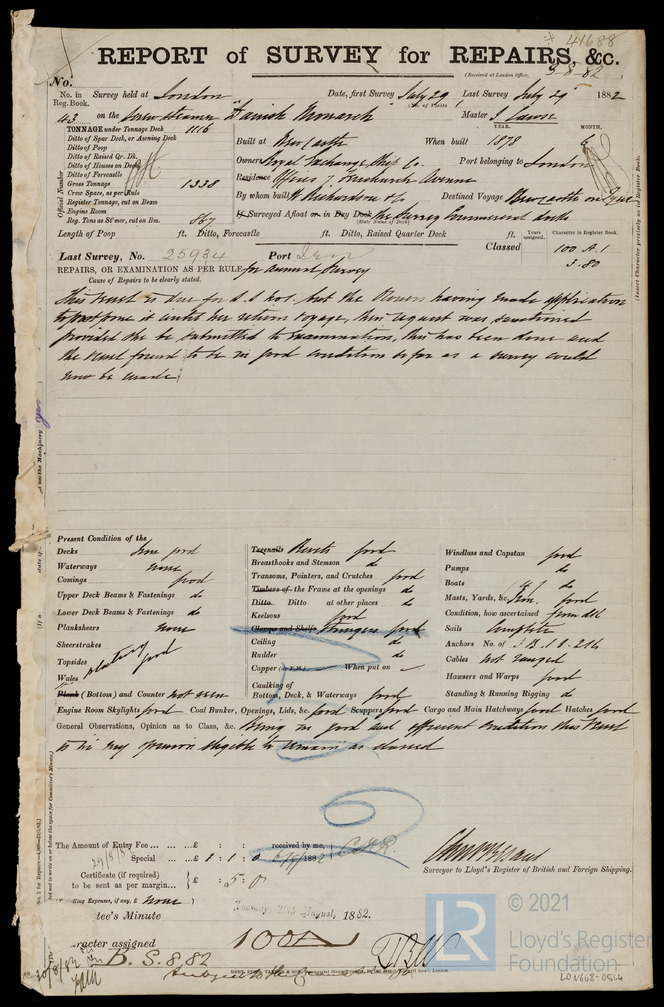 41688
REPORT of SURVEY for REPAIRS, &c.
(Received at London Office, 3-8-82)
No.
No. in Survey held at London Date, first Survey July 29 Last Survey July 29 1882
Reg. Book. (No. of Visits)
43 on the Screw Steamer "Danish Monarch Master J
TONNAGE under Tonnage Deck 1116
YEAR. MONTH.
Ditto of Spar Deck, or Awning Deck
Built at Newcastle When built 1878 6
Ditto of Poop
Ditto of Raised Qr. Dk.
Owners Royal Exchange Ship Co. Port belonging to London
Ditto of Houses on Deck
Ditto of Forecastle
Residence Offices 7 Fenchurch Avenue
Gross Tonnage 1338
Crew Space, as per Rule
By whom built Richardson & Co Destined Voyage Newcastle on Tyne
Register Tonnage, cut on Beam
Engine Room
If Surveyed Afloat or in Dry Dock The Surrey Commercial docks
(State Name of Dock)
Reg. Tons as St'mer, cut on Bm. 867
Official Number
Length of Poop ft. Ditto, Forecastle ft. Ditto, Raised Quarter Deck ft. Years assigned. Character in Register Book.
Classed 100 A.1
3.80
Last Survey, No. 25934 Port
REPAIRS, OR EXAMINATION AS PER RULE for Annual Survey
Cause of Repairs to be clearly stated.
This Vessel is due for S.S. No1. but the Owners having made application
to postpone it until her return voyage, their request was sanctioned
provided she be submitted to examination, this has been done and
the Vessel found to be in good condition so far as a survey could
now be made.
Present Condition of the
Decks Iron good
Waterways none
Comings good
Upper Deck Beams & Fastenings do
Lower Deck Beams & Fastenings do
Planksheers none
Sheerstrakes
Topsides plating good
Wales
Plank (Bottom) and Counter not seen
Treenails Rivets good
Breasthooks and Stemson do
Transoms, Pointers, and Crutches good
Timbers of the Frame at the openings do
Ditto Ditto at other places do
Keelsons good
Clamps and Shelfs Stringers good
Ceiling do
Rudder do
Copper (or Y.M.) When put on
Caulking of
Bottom, Deck, & Waterways good
Windlass and Capstan good
Pumps do
Boats 4 do
Masts, Yards, &c. Iron. good
Condition, how ascertained from dk
Sails Complete
Anchors No. of
Cables Not ranged
Hawsers and Warps good
Standing & Running Rigging do
Engine Room Skylights good Coal Bunker, Openings, Lids, &c. good Scuppers good Cargo and Main Hatchways good Hatches good
General Observations, Opinion as to Class, &c. Being in good and efficient condition this Vessel
is in my opinion eligible to remain as classed
The Amount of Entry Fee ... ... £ : : received by me,
Special ... ... £ 1 : 1 : 0 188
Certificate (if required)
to be sent as per margin... £ : 5 : 0
ling Expenses, if any, £ none
Surveyor to Lloyd's Register of British and Foreign Shipping.
tee's Minute Tuesday, August, 1882.
racter assigned 100A
B. S. 8, 82
© 2021
LR
Lloyd's Register
Foundation
LON668-0504